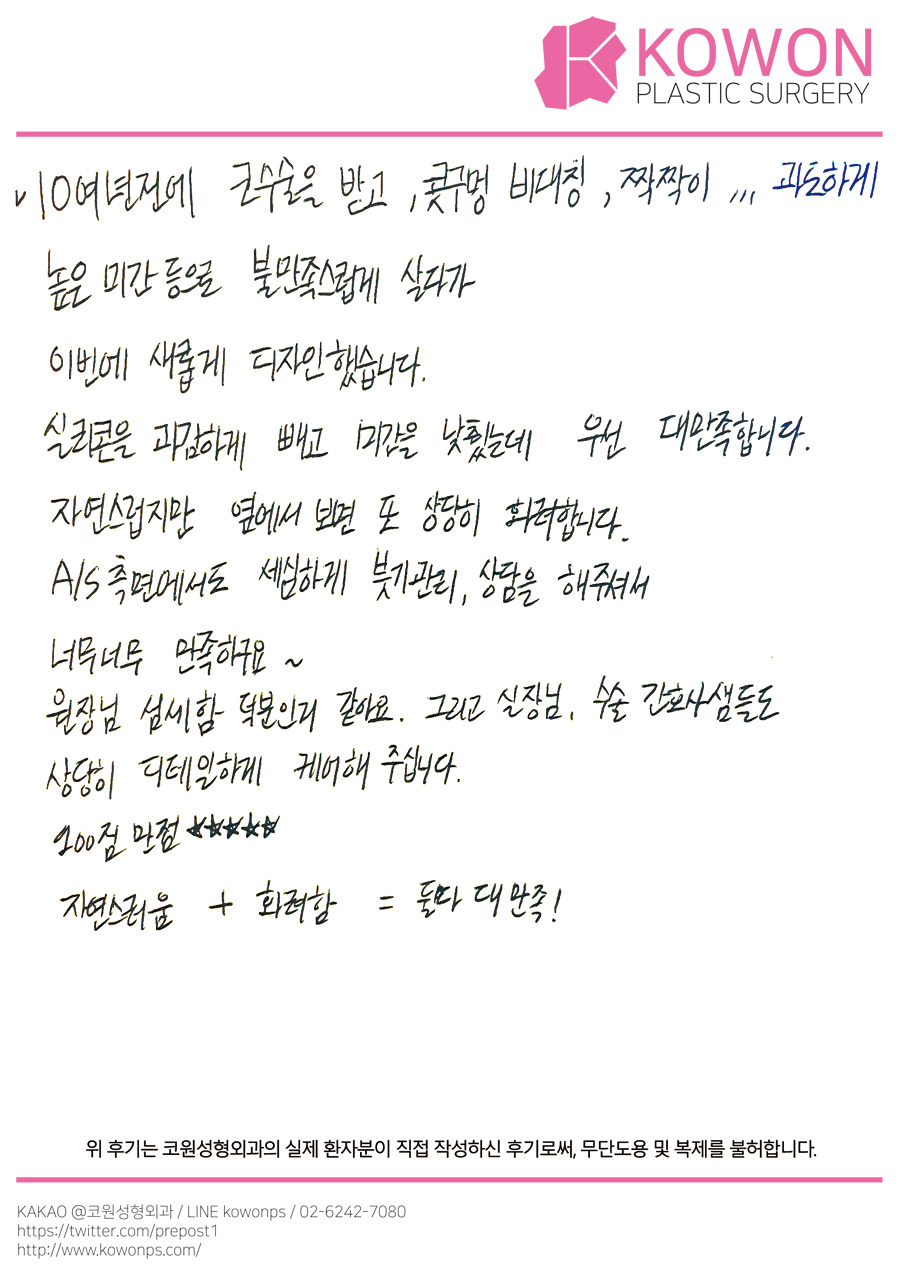 KOWON
PLASTIC SURGERY
✓10여년전에 큰수술을 받고, 콧구멍 비대칭, 짝짝이 ,,, 과도하게
높은 미간 등으로 불만족스럽게 살다가
이번에 새롭게 디자인했습니다.
실리콘을 과감하게 빼고 미간을 낮췄는데 우선 대만족합니다.
자연스럽지만 옆에서 보면 또 상당히 화려합니다.
A/S 측면에서도 세심하게 붓기관리, 상담을 해주셔서
너무너무 만족하구요~
원장님 섬세함 덕분인거 같아요. 그리고 실장님, 수술 간호사샘들도
상당히 디테일하게 케어해 주십니다.
100점 만점 ★★★★★
자연스러움 + 화려함 = 둘다 대만족!
위 후기는 코원성형외과의 실제 환자분이 직접 작성하신 후기로써, 무단도용 및 복제를 불허합니다.
KAKAO @코원성형외과 / LINE kowonps / 02-6242-7080
https://twitter.com/prepost1
http://www.kowonps.com/